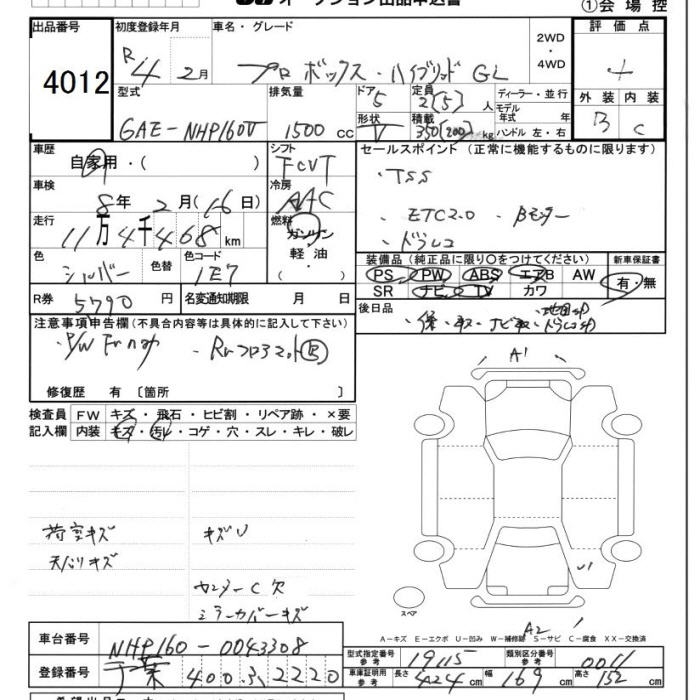 ①会場控
出品番号 初度登録年月 車名・グレード 評価点
4012 R4 2月 プロボックス・ハイブリッド GL 2WD・4WD
型式 排気量 ドア 5 定員 2(5)人 ディーラー・並行 外装 内装
6AE-NHP160V 1500cc 形状 V 積載 350(200)kg モデル年式 年式 ハンドル 左・右 B C
車歴 自家用・( ) シフト FCVT セールスポイント (正常に機能するものに限ります)
・TSS
車検 8年 2月(16日) 冷房 AAC
・ETC2.0 ・Bモニター
走行 11万4千468km 燃料 ガソリン 軽油 ( )
・ドラレコ
色 シルバー 色替 色コード 1E7
装備品 (純正品に限り○をつけてください) 新車保証書
PS PW ABS エアB AW 有・無
SR ナビ TV カワ
R券 5790円 名変通知期限 月 日
後日品 ・保・取・ナビ取・
注意事項申告欄 (不具合内容等は具体的に記入して下さい)
修復歴 有 〔箇所 〕
A1
検査員 FW キズ・飛石・ヒビ割・リペア跡・×要
記入欄 内装 キズ・汚レ・コゲ・穴・スレ・キレ・破レ
荷室キズ キズU
天バリキズ
U1
センターC欠
ミラーカバーキズ
スペア
A2
A－キズ E－エクボ U－凹み W－補修跡 S－サビ C－腐食 XX－交換済
車台番号 NHP160-0043308
型式指定番号 参考 19115 類別区分番号 参考 0011
登録番号 千葉 400 る 2220
車庫証明用 参考 長さ 424cm 幅 169cm 高さ 152cm